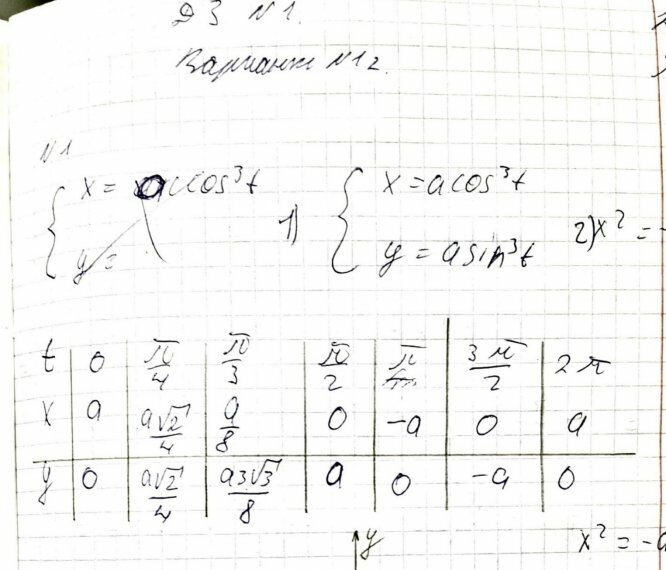 ДЗ №1.
Вариант №12.
№1
{ x = a cos³t
y =
1) { x = a cos³t
y = a sin³t
2) x² = -
t 0 π/4 π/3 π/2 π 3π/2 2π
x a a√2/4 a/8 0 -a 0 a
y 0 a√2/4 a3√3/8 a 0 -a 0
y
x² = -a